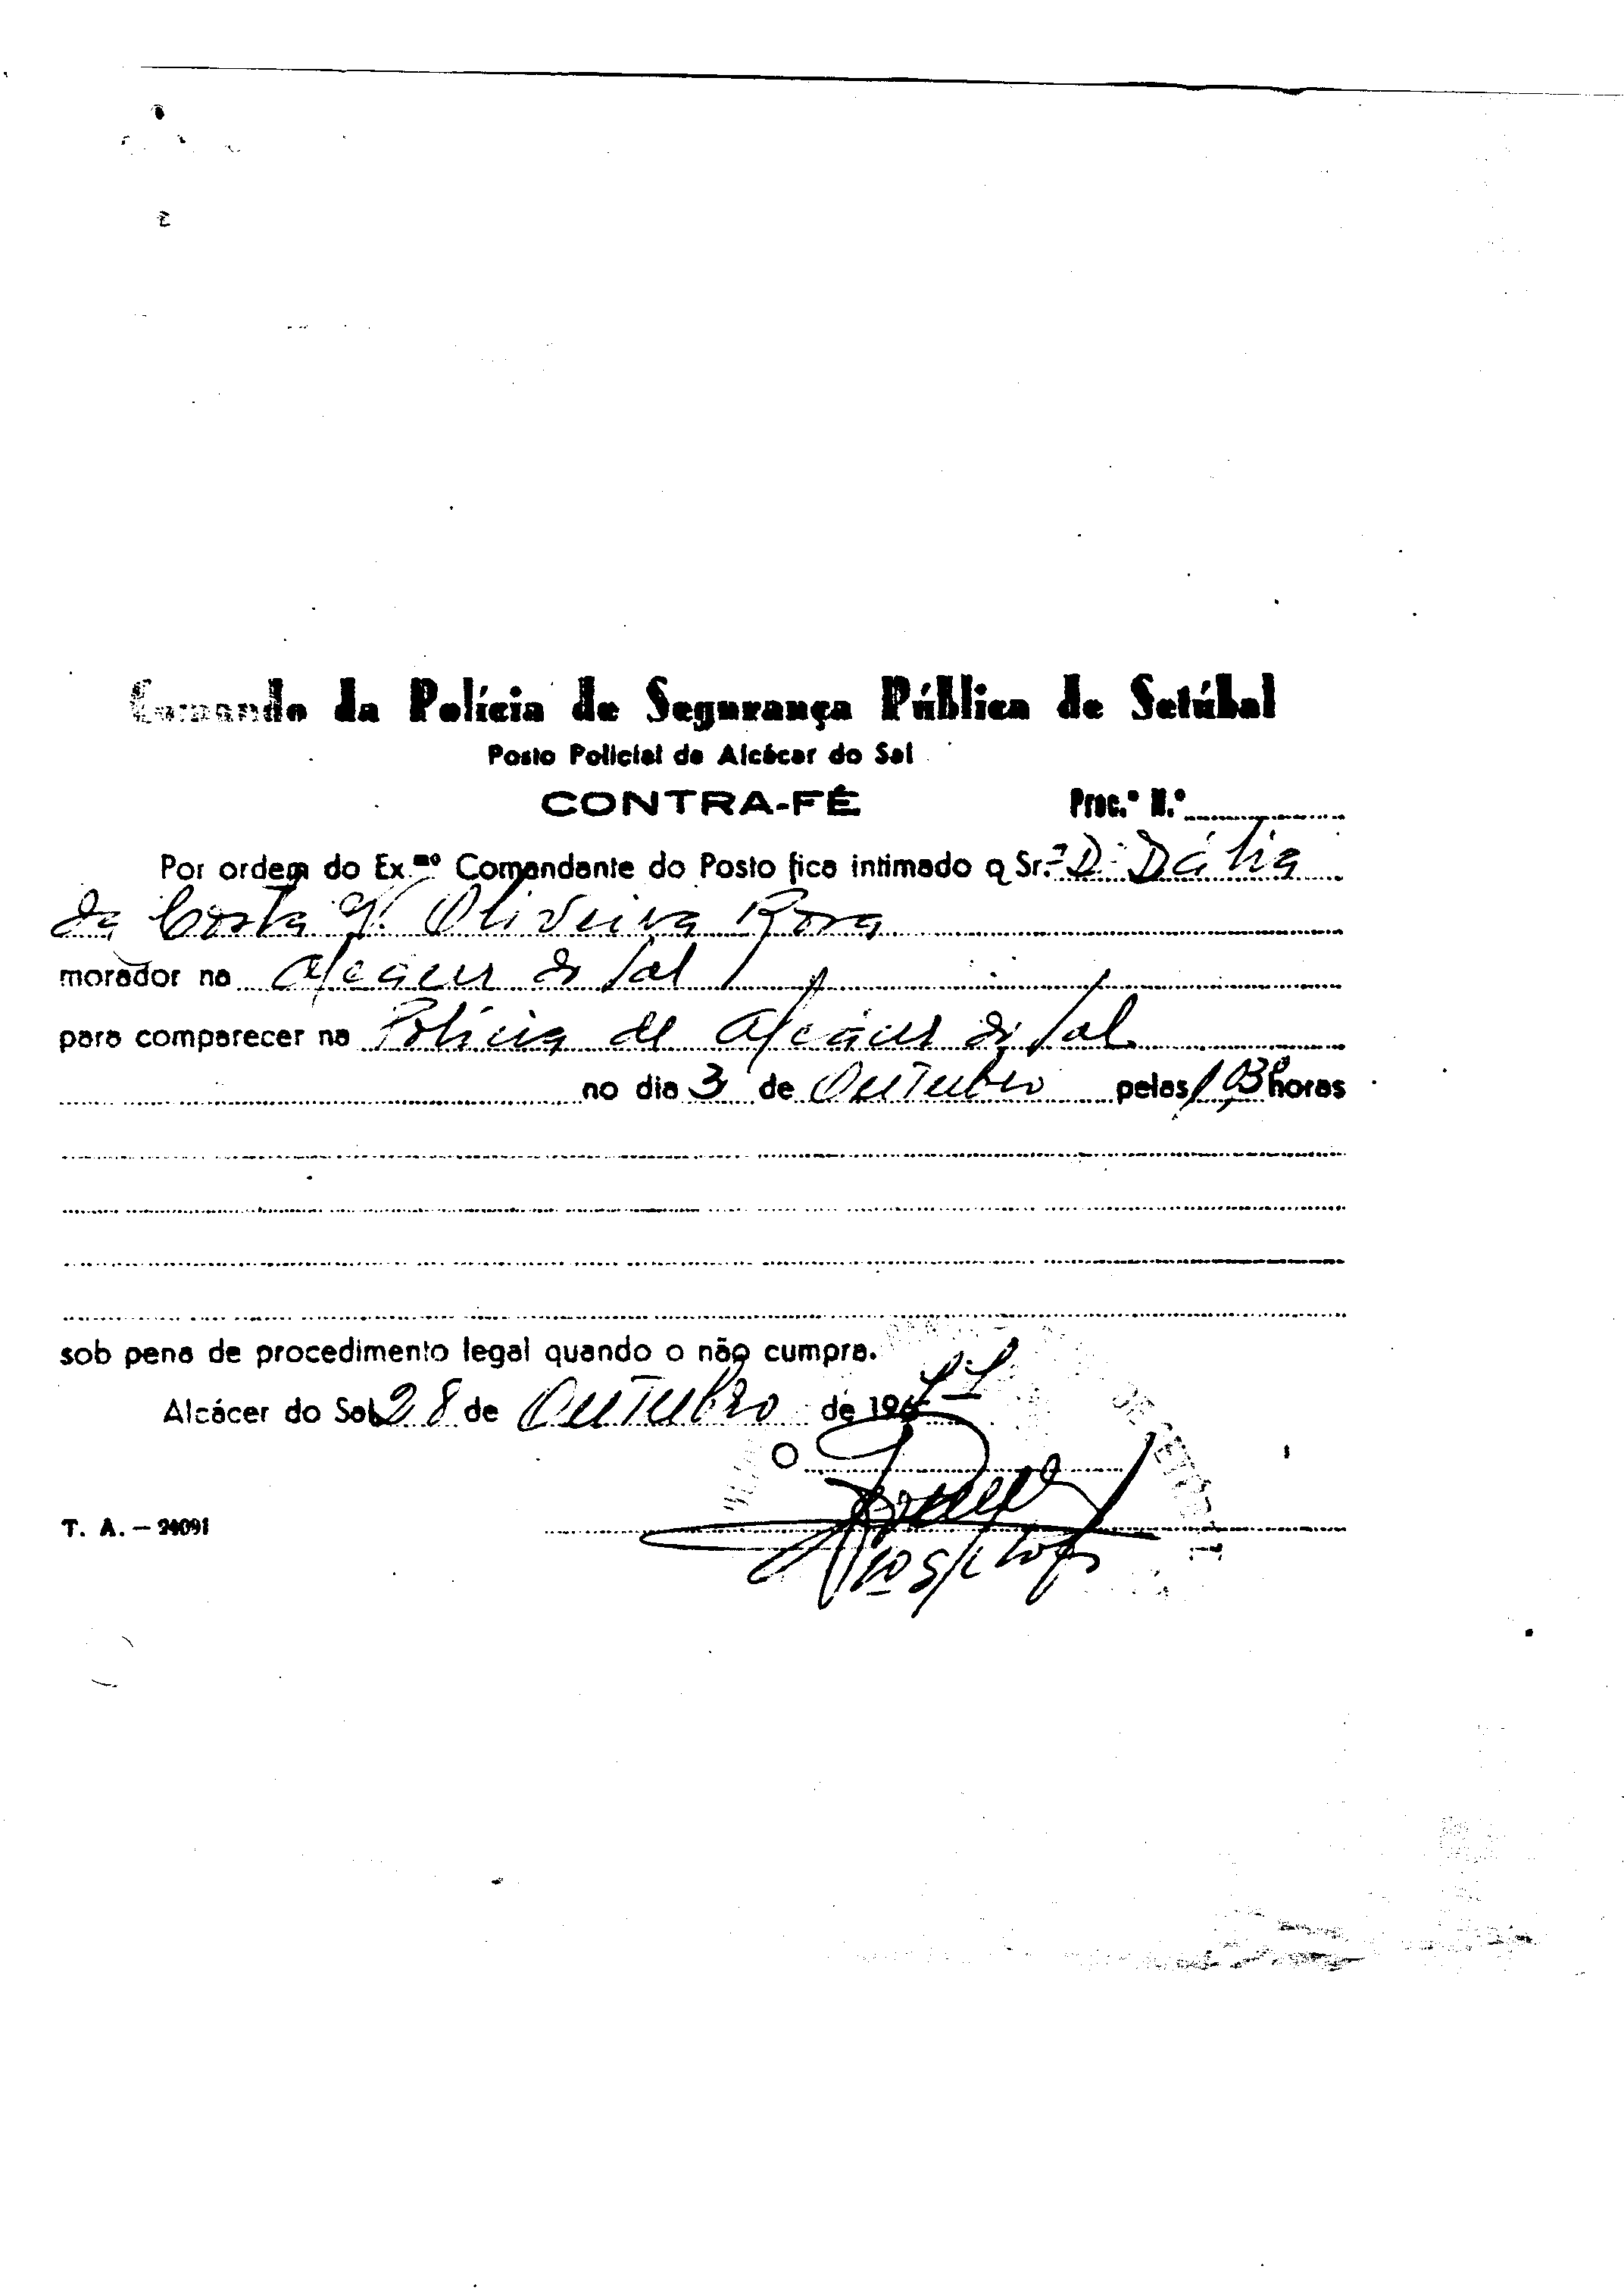 Comando da Polícia de Segurança Pública de Setúbal
Posto Policial de Alcácer do Sal
CONTRA-FÉ Proc.º N.º
Por ordem do Ex.mo Comandante do Posto fica intimado a Sr.ª D. Dália
da Costa V. Oliveira Rosa
morador na Alcácer do Sal
para comparecer na Polícia de Alcácer do Sal
no dia 3 de Outubro pelas 13 horas
sob pena de procedimento legal quando o não cumpra.
Alcácer do Sal 28 de Outubro de 196
O
T. A. — 24091